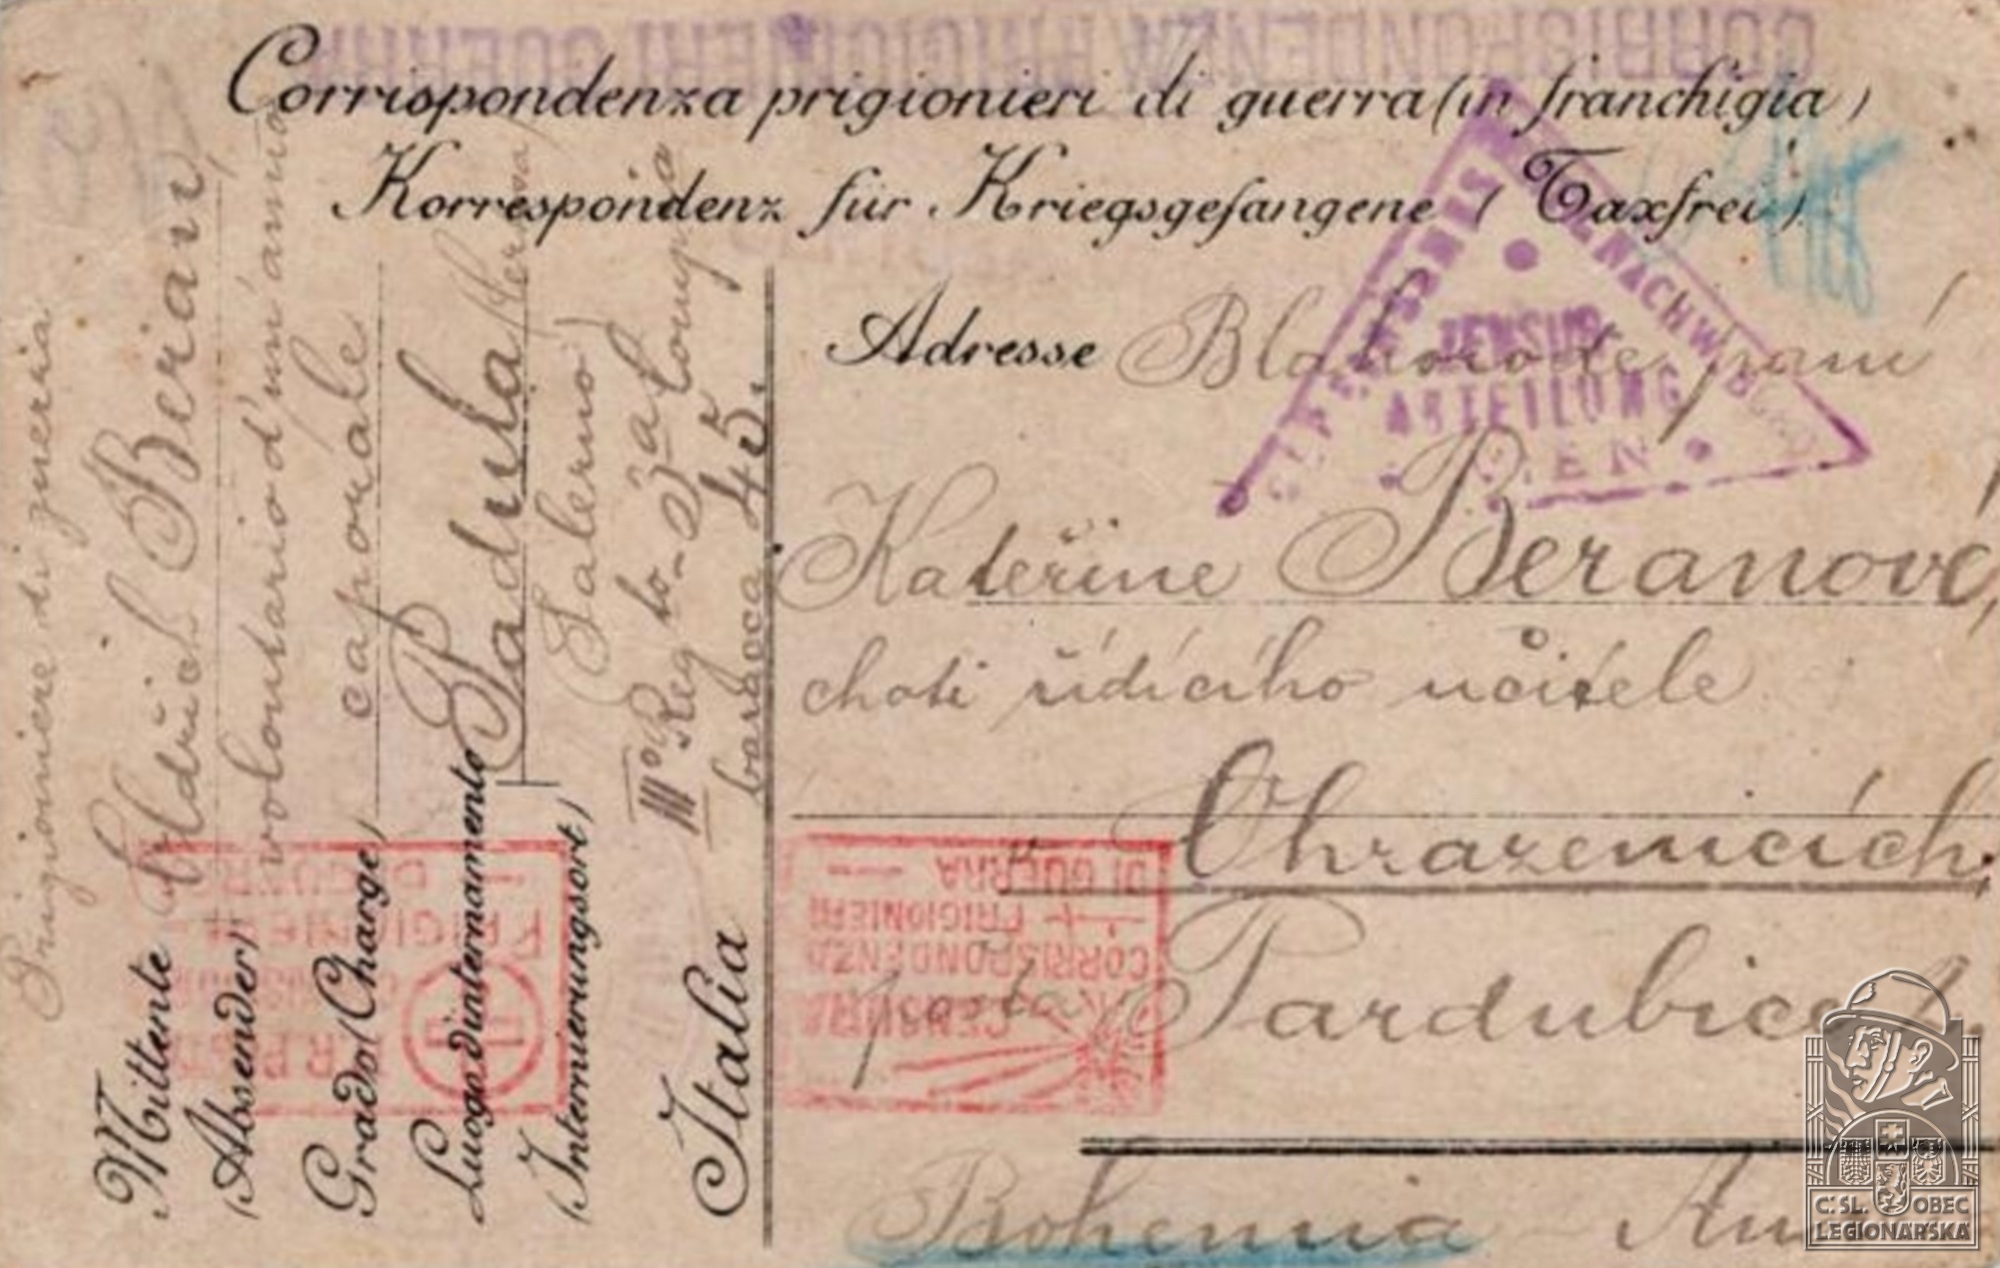 CORRISPONDENZA PRIGIONIERI GUERRA
Corrispondenza prigionieri di guerra (in franchigia)
Korrespondenz für Kriegsgefangene (Taxfrei)
ZENSUR-
ABTEILUNG
WIEN
Adresse Blahorodé paní
Kateřině Beranové,
choti řídícího učitele
v Ohrazenicích,
pošta Pardubice
Bohemia - Au
Prigioniere di guerra
Mittente Aldřich Beran,
(Absender) volontario d'un anno
Grado (Charge) caporale
Luogo d'internamento Padula
(Internierungsort) Salerno
IIIº Reg to - 3a Compa
Italia baracca 45.
CENSURA
CORRISPONDENZA
PRIGIONIERI
DI GUERRA
PRIGIONIERI
DI GUERRA
Č.SL. OBEC
LEGIONÁŘSKÁ